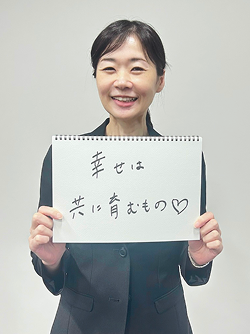 幸せは
共に育むもの♡